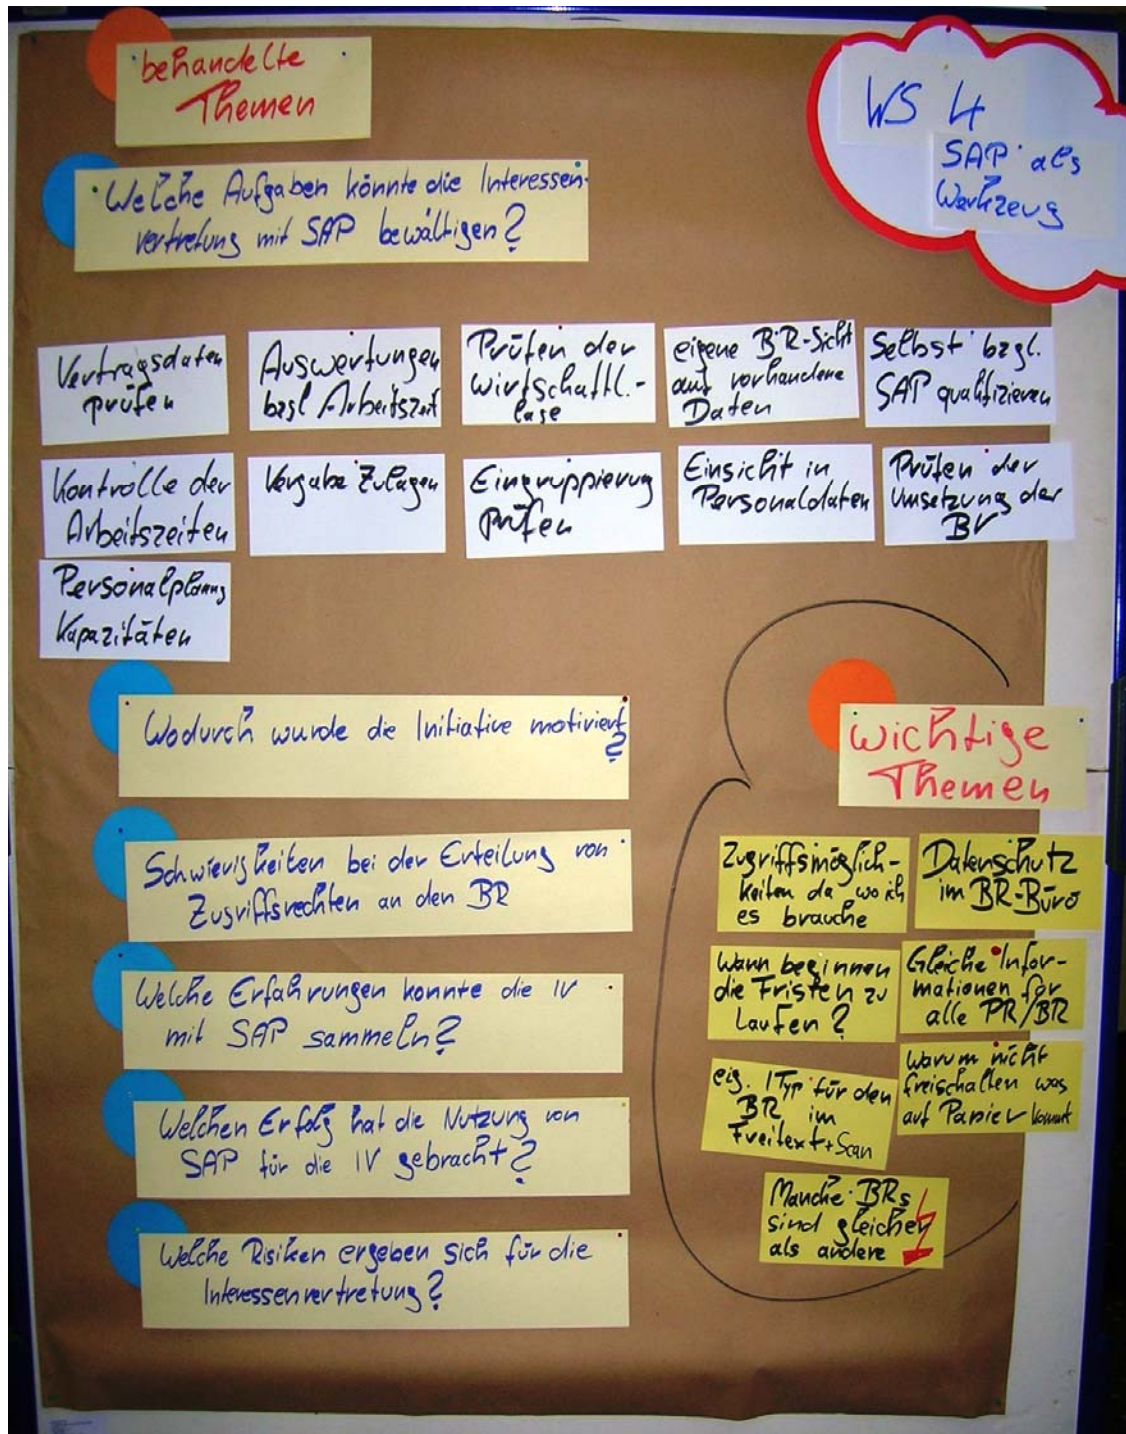 behandelte
Themen
WS 4
SAP als
Werkzeug
Welche Aufgaben könnte die Interessen-
vertretung mit SAP bewältigen?
Vertragsdaten
prüfen
Auswertungen
bzgl Arbeitszeit
Prüfen der
wirtschaftl.-
lage
eigene BR-Sicht
auf vorhandene
Daten
Selbst bzgl.
SAP qualifizieren
Kontrolle der
Arbeitszeiten
Vergabe Zulagen
Eingruppierung
prüfen
Einsicht in
Personaldaten
Prüfen der
Umsetzung der
BV
Personalplanung
Kapazitäten
Wodurch wurde die Initiative motiviert
?
Schwierigkeiten bei der Erteilung von
Zugriffsrechten an den BR
Welche Erfahrungen konnte die IV
mit SAP sammeln?
Welchen Erfolg hat die Nutzung von
SAP für die IV gebracht?
Welche Risiken ergeben sich für die
Interessenvertretung?
wichtige
Themen
Zugriffsmöglich-
keiten da wo ich
es brauche
Datenschutz
im BR-Büro
Wann beginnen
die Fristen zu
Laufen?
Gleiche Infor-
mationen für
alle PR/BR
eig. ITyp für den
BR im
Freitext+Scan
Warum nicht
freischalten was
auf Papier kommt
Manche BRs
sind gleicher
als andere